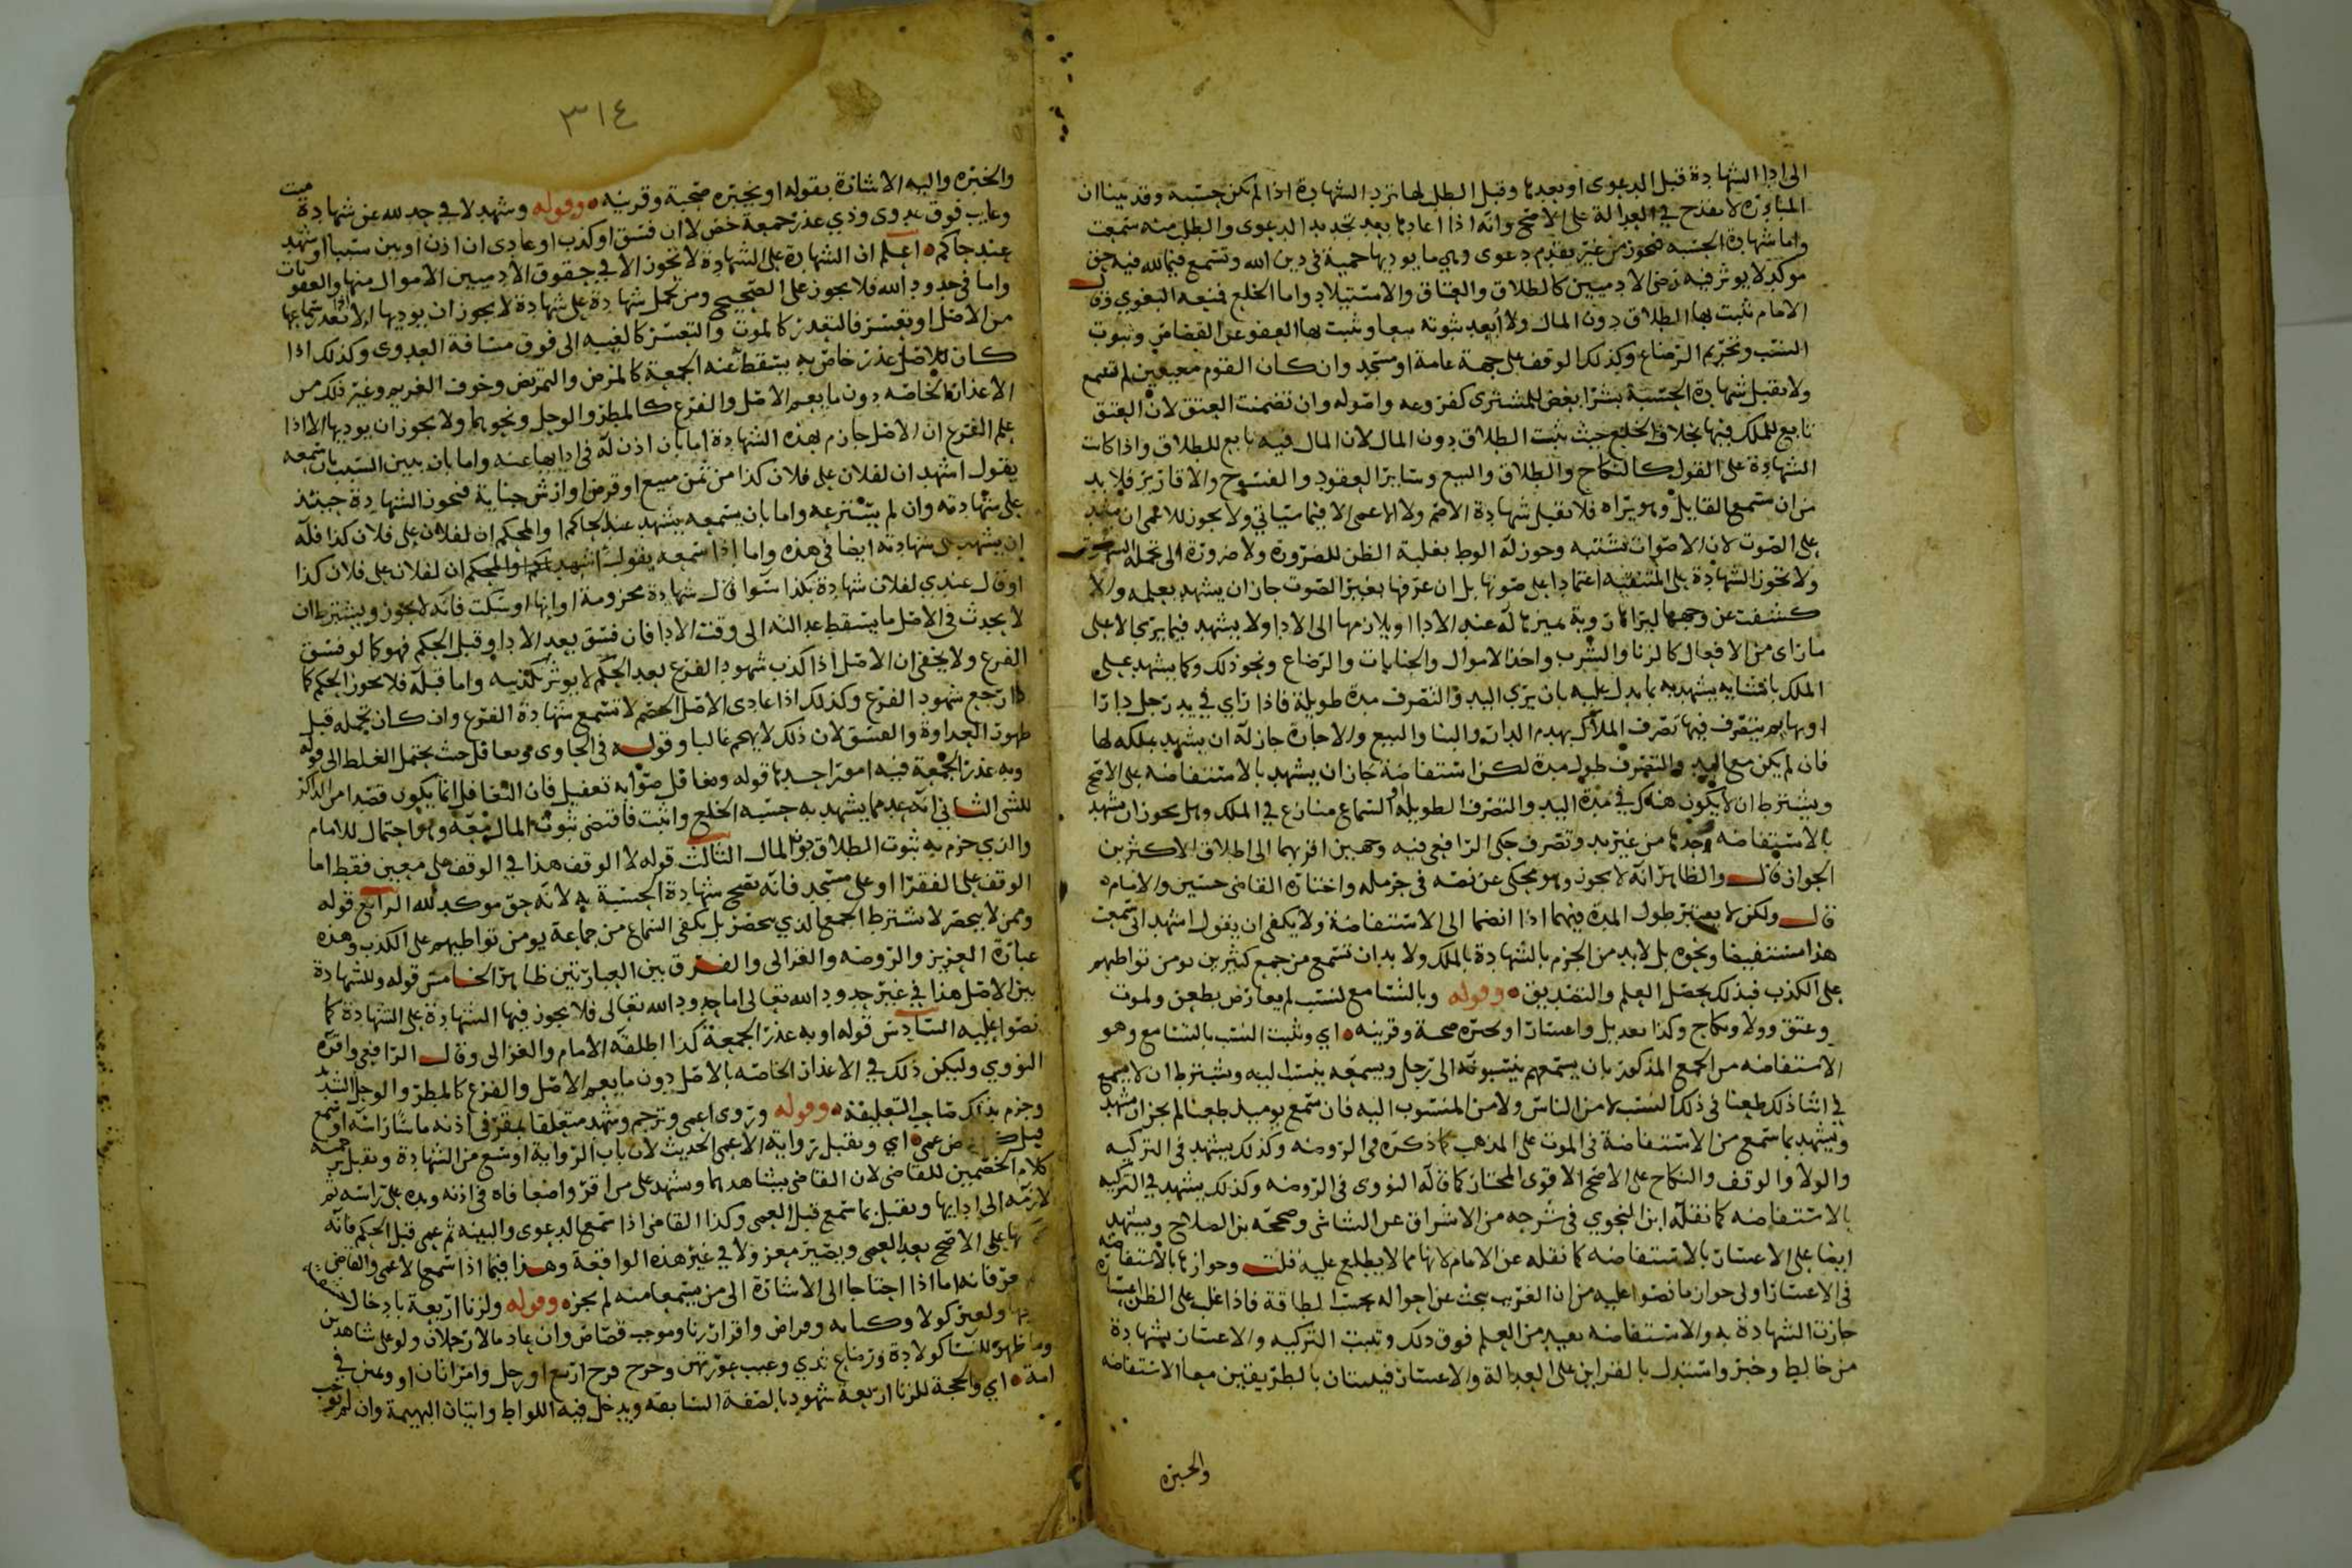 الى ادا الشهادة قبل الدعوى او بعدها وقبل الطلب لها ترد الشهادة اذا لم تكن حسبة وقد بينا ان
المبادرة لا تقدح في العدالة على الاصح وانه اذا اعادها بعد تجديد الدعوى والطلب منه سمعت
واما شهادة الحسبة فتجوز من غير تقدم دعوى وهي ما يوديها حمية في دين الله وتسمع فيما لله فيه حق
موكد لا يوثر فيه رضى الادميين كالطلاق والعتاق والاستيلاد واما الخلع فمنعه البغوي وقال
الامام تثبت بها الطلاق دون المال ولا ابعد ثبوته تبعا وتثبت بها العفو عن القصاص وثبوت
النسب وتحريم الرضاع وكذلك الوقف على جهة عامة او مسجد وان كان القوم معينين لم تسمع
ولا تقبل شهادة الحسبة بشرا بعض المشترى كفروعه واصوله وان تضمنت العتق لان العتق
تابع للملك فيها بخلاف الخلع حيث يثبت الطلاق دون المال لان المال فيه تابع للطلاق واذا كانت
الشهادة على القول كالنكاح والطلاق والبيع وسائر العقود والفسوخ والاقارير فلا بد
من ان يسمع القايل وهو يراه فلا تقبل شهادة الاصم ولا الاعمى الا فيما سياتي ولا يجوز للاعمى ان يشهد
على الصوت لان الاصوات تشتبه وجوز له الوط بغلبة الظن للضرورة ولا ضرورة الى تحمله
ولا تجوز الشهادة على المتنقبة اعتمادا على صوتها بل ان عرفها بغير الصوت جاز ان يشهد بعلمه والا
كشفت عن وجهها ليراها روية يميزها له عند الادا او يلازمها الى الادا ولا يشهد فيما يرى الا على
ما راى من الافعال كالزنا والشرب واخذ الاموال والجنايات والرضاع ونحو ذلك وكما يشهد على
الملك باستنابه يشهد به بما يدل عليه بان يرى اليد والتصرف مدة طويلة فاذا راي في يد رجل دارا
او بهايم يتصرف فيها تصرف الملاك بهدم الدار والبنا والبيع والاجارة جاز له ان يشهد بملكه لها
فان لم يكن مع اليد والتصرف طول مدة لكن استفاضة جاز ان يشهد بالاستفاضه على الاصح
ويشترط ان لا يكون هناك في مدة اليد والتصرف الطويلة او السماع منازع في الملك وهل يجوز ان يشهد
بالاستفاضه وحدها من غير يد وتصرف حكى الرافعى فيه وجهين اقربهما الى اطلاق الاكثرين
الجواز قال والظاهر انه لا يجوز وهو محكى عن نصه في حرمله واختاره القاضى حسين والامام
قال ولكن لا يعتبر طول المدة فيهما اذا انضما الى الاستفاضة ولا يكفى ان يقول اشهد انى سمعت
هذا مستفيضا ونحوه بل لا بد من الجزم بالشهادة بالملك ولا بد ان تسمع من جمع كثيرين يومن تواطيهم
على الكذب فبذلك يحصل العلم والتصديق وقوله وبالتسامع لنسب لم يعارض بطعن ولموت
وعتق وولا ونكاح وكذا تعديل واعسار او بخبرة صحبة وقرينه اي وتثبت النسب بالتسامع وهو
الاستفاضه من الجمع المذكور بان يسمعهم ينسبونه الى رجل ويسمعه ينتسب اليه ويشترط ان لا يسمع
في اثنا ذلك طعنا في ذلك النسب لا من الناس ولا من المنسوب اليه فان سمع يوميد طعنا لم يجز ان يشهد
ويشهد بما سمع من الاستفاضة في الموت على المذهب كما ذكره في الروضه وكذلك يشهد في التزكيه
والولا والوقف والنكاح على الاصح الاقوى المختار كما قاله النووى في الروضه وكذلك يشهد في التزكيه
بالاستفاضه كما نقله ابن النحوي في شرحه من الاشراق عن الشاشى وصححه بن الصلاح ويشهد
ايضا على الاعسار بالاستفاضه كما نقله عن الامام لانها مما لا يطلع عليه قلت وجوازها بالاستفاضة
في الاعسار اولى جواز ما نصوا عليه من ان الغريب يبحث عن احواله بحسب الطاقة فاذا غلب على الظن اعساره
جازت الشهادة به والاستفاضه تفيد من العلم فوق ذلك وتثبت التزكيه والاعسار بشهادة
من خالط وخبر واستدل بالقراين على العدالة والاعسار فيثبتان بالطريقين معا الاستفاضه
والخبره
٣١٤
والخبره واليه الاشارة بقوله او بخبره صحبة وقرينه وقوله وشهد لا في حد لله عن شهادة ميت
وغايب فوق عدوى وذي عذر جمعة خص لا ان فسق او كذب او عادى ان اذن او بين سببا او شهد
عند حاكم اعلم ان الشهادة على الشهادة لا تجوز الا في حقوق الادميين الاموال منها والعقوبات
واما في حدود الله فلا يجوز على الصحيح ومن تحمل شهادة على شهادة لا يجوز ان يوديها الا اذا تعذر سماعها
من الاصل او تعسر فالتعذر كالموت والتعسر كالغيبه الى فوق مسافة العدوى وكذلك اذا
كان للاصل عذر خاص به يسقط عنه الجمعة كالمرض والتمريض وخوف الغريم وغير ذلك من
الاعذار الخاصه دون ما يعم الاصل والفرع كالمطر والوحل ونحوهما ولا يجوز ان يوديها الا اذا
علم الفرع ان الاصل جازم بهذه الشهادة اما بان اذن له في ادايها عنه واما بان يبين السبب بان سمعه
يقول اشهد ان لفلان على فلان كذا من ثمن مبيع او قرض او ارش جناية فتجوز الشهادة حينئذ
على شهادته وان لم يسترعه واما بان يسمعه يشهد عند الحاكم او المحكم ان لفلان على فلان كذا فله
ان يشهد على شهادته ايضا في هذه واما اذا سمعه يقول اشهد ان لفلان على فلان كذا
او قال عندي لفلان شهادة بكذا سوا قال شهادة مجزومة او ابهم او سكت فانه لا يجوز ويشترط ان
لا يحدث في الاصل ما يسقط عدالته الى وقت الادا فان فسق بعد الادا وقبل الحكم فهو كما لو فسق
الفرع ولا يخفى ان الاصل اذا كذب شهود الفرع بعد الحكم لا يوثر تكذيبه واما قبله فلا يجوز الحكم كما
اذا رجع شهود الفرع وكذلك اذا عادى الاصل الخصم لا تسمع شهادة الفرع وان كان تحمله قبل
ظهور العداوة والفسق لان ذلك لا يهجم غالبا وقوله في الحاوى ومغافل حيث يحتمل الغلط الى قوله
وبه عذر الجمعة فيه امور احدها قوله ومغافل صوابه تغفيل فان التغافل انما يكون قصدا من الذاكر
للشى الثاني انه عد مما يشهد به حسبه الخلع واثبت فاقتضى ثبوت المال معه وهو احتمال للامام
والذي جزم به ثبوت الطلاق دون المال الثالث قوله لا الوقف هذا في الوقف على معين فقط اما
الوقف على الفقرا او على مسجد فانه تصح شهادة الحسبة به لانه حق موكد لله الرابع قوله
وممن لا ينحصر لا يشترط الجمع الذي ينحصر بل يكفى السماع من جماعة يومن تواطيهم على الكذب وهذه
عبارة العزيز والروضه والغزالى والفرق بين العبارتين ظاهر الخامس قوله وللشهادة
بين الاصل هذا في غير حدود الله تعالى اما حدود الله تعالى فلا يجوز فيها الشهادة على الشهادة كما
نصوا عليه السادس قوله او به عذر الجمعة كذا اطلقه الامام والغزالى وقال الرافعى واقره
النووي وليكن ذلك في الاعذار الخاصه بالاصل دون ما يعم الاصل والفرع كالمطر والوحل الشديد
وجزم بذلك صاحب التعليقة وقوله وروى اعمى وترجم وشهد متعلقا بمقر في اذنه ماسا راسه او سمع
قبل عمى اي وتقبل رواية الاعمى الحديث لان باب الرواية اوسع من الشهادة وتقبل ترجمته
كلام الخصمين للقاضى لان القاضى يشاهدهما ويشهد على من اقر واضعا فاه في اذنه ويده على راسه ثم
لازمه الى ادايها وتقبل بما سمع قبل العمى وكذا القاضى اذا سمع الدعوى والبينه ثم عمى قبل الحكم فانه
بها على الاصح بعد العمى ويصير معزولا في غير هذه الواقعة وهذا فيما اذا سمع الاعمى والقاضى
فانه اما اذا احتاجا الى الاشارة الى من سمعا منه لم يجز وقوله ولزنا اربعة بادخال
ولغيره كولا وكتابه وقراض واقرار زنا وموجب قصاص وان عاد مالا رجلان ولو على شاهدين
وما ظهر للنسا كولادة ورضاع ثدي وعيب عورتهن وجرح فرج اربع او رجل وامراتان او ويمين في
امة اي والحجة للزنا اربعة شهود بالصفة السابقه ويدخل فيه اللواط واتيان البهيمة وان لم نوجب